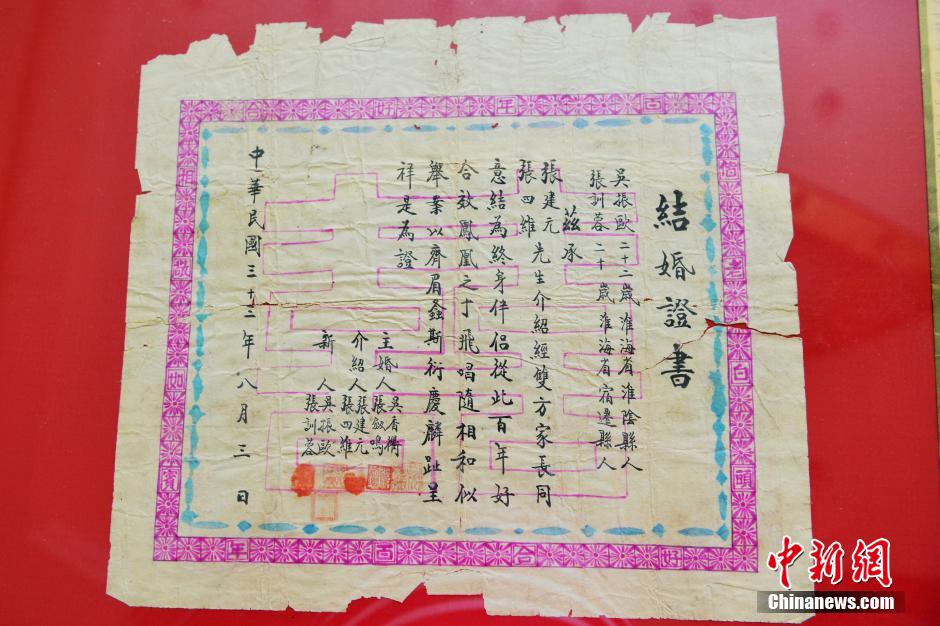 結婚證書
吳振歐二十二歲淮海省淮陰縣人
張訓蓉二十歲淮海省宿遷縣人
茲承
張建元
張四維
先生介紹經雙方家長同
意結為終身伴侶從此百年好
合效鳳凰之于飛唱隨相和似
舉案以齊眉螽斯衍慶麟趾呈
祥是為證
主婚人
吳香衢
張啟鳴
介紹人
張建元
張四維
新人
吳振歐
張訓蓉
中華民國三十三年八月三日
百年好合
偕老白頭
相敬如賓
好合百年
中新網
Chinanews.com